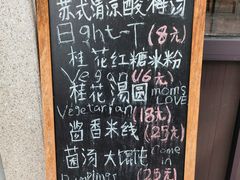 苏式清凉酸梅汤
(8元)
桂花红糖冰粉
Vegan (16元)
桂花汤圆 moms LOVE
Vegetarian (18元)
酱香米线 (25元)
菌汤大馄饨 Come in
Dumplings (25元)